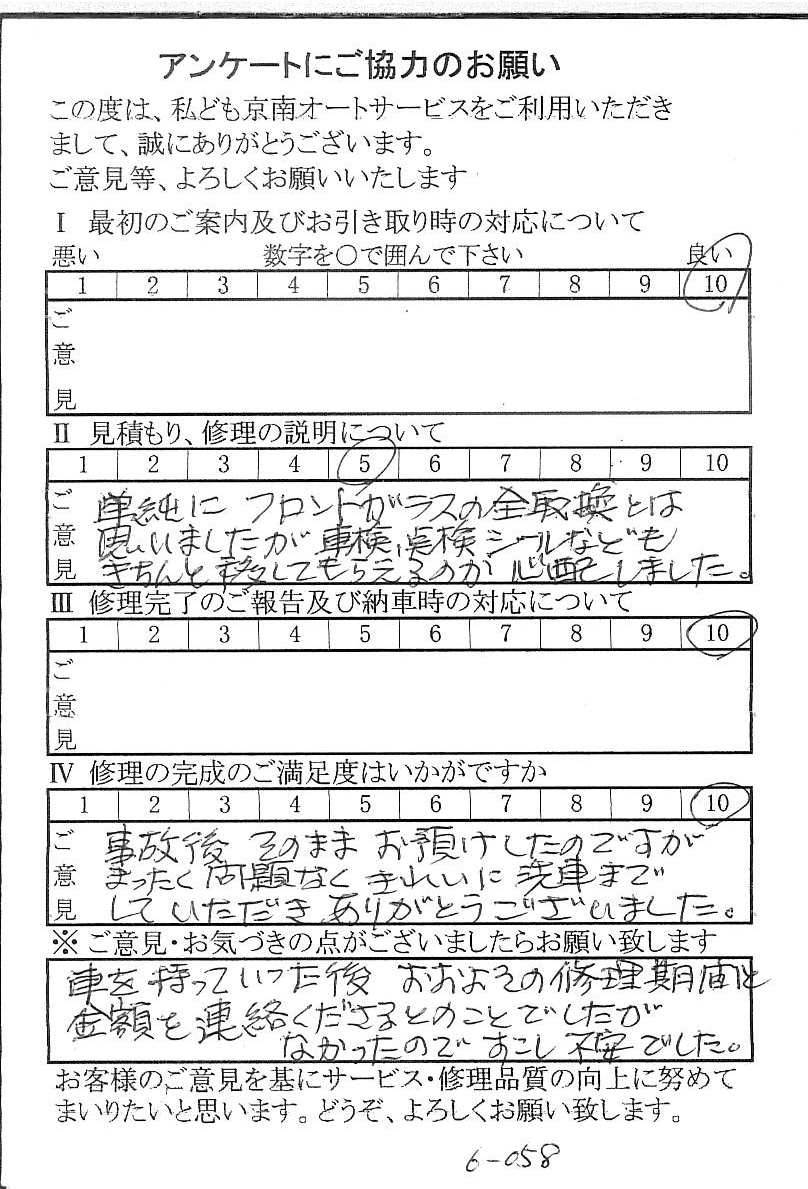 アンケートにご協力のお願い
この度は、私ども京南オートサービスをご利用いただき
まして、誠にありがとうございます。
ご意見等、よろしくお願いいたします
Ⅰ 最初のご案内及びお引き取り時の対応について
悪い 数字を〇で囲んで下さい 良い
1 2 3 4 5 6 7 8 9 10
ご
意
見
Ⅱ 見積もり、修理の説明について
1 2 3 4 5 6 7 8 9 10
ご 単純に フロントガラスの全取換とは
意 思いましたが 車検、点検シールなども
見 きちんと移してもらえるのか 心配しました。
Ⅲ 修理完了のご報告及び納車時の対応について
1 2 3 4 5 6 7 8 9 10
ご
意
見
Ⅳ 修理の完成のご満足度はいかがですか
1 2 3 4 5 6 7 8 9 10
ご 事故後 そのまま お預けしたのですが
意 まったく問題なく きれいに 洗車まで
見 していただき ありがとうございました。
※ ご意見・お気づきの点がございましたらお願い致します
車を持っていった後 おおよその修理期間と
金額を連絡くださるとのことでしたが
なかったので すこし 不安でした。
お客様のご意見を基にサービス・修理品質の向上に努めて
まいりたいと思います。どうぞ、よろしくお願い致します。
6-058